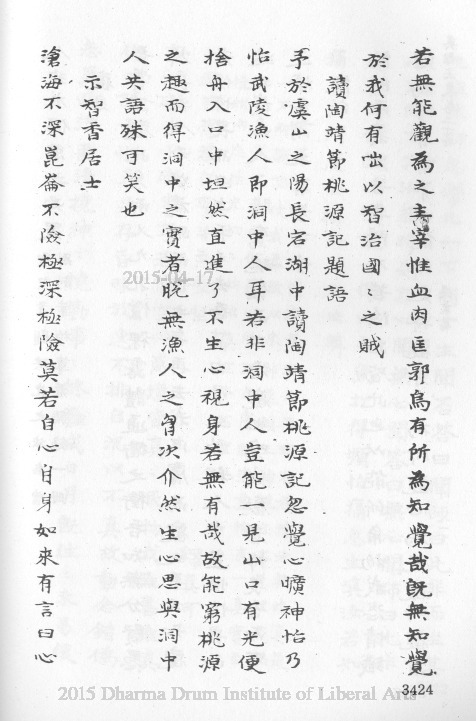 若無能觀為之主宰惟血肉匡郭烏有所為知覺哉既無知覺
於我何有咄以智治國之賊
讀陶靖節桃源記題語
予於虞山之陽長宕湖中讀陶靖節桃源記忽覺心曠神怡乃
怡武陵漁人即洞中人耳若非洞中人豈能一見山口有光便
捨舟入口中坦然直進了不生心視身若無有哉故能窮桃源
之趣而得洞中之實者脫無漁人之胷次介然生心思與洞中
人共語殊可笑也
示智香居士
滄海不深崑崙不險極深極險莫若自心自身如來有言曰心
3424
2015-04-17
2015 Dharma Drum Institute of Liberal Arts